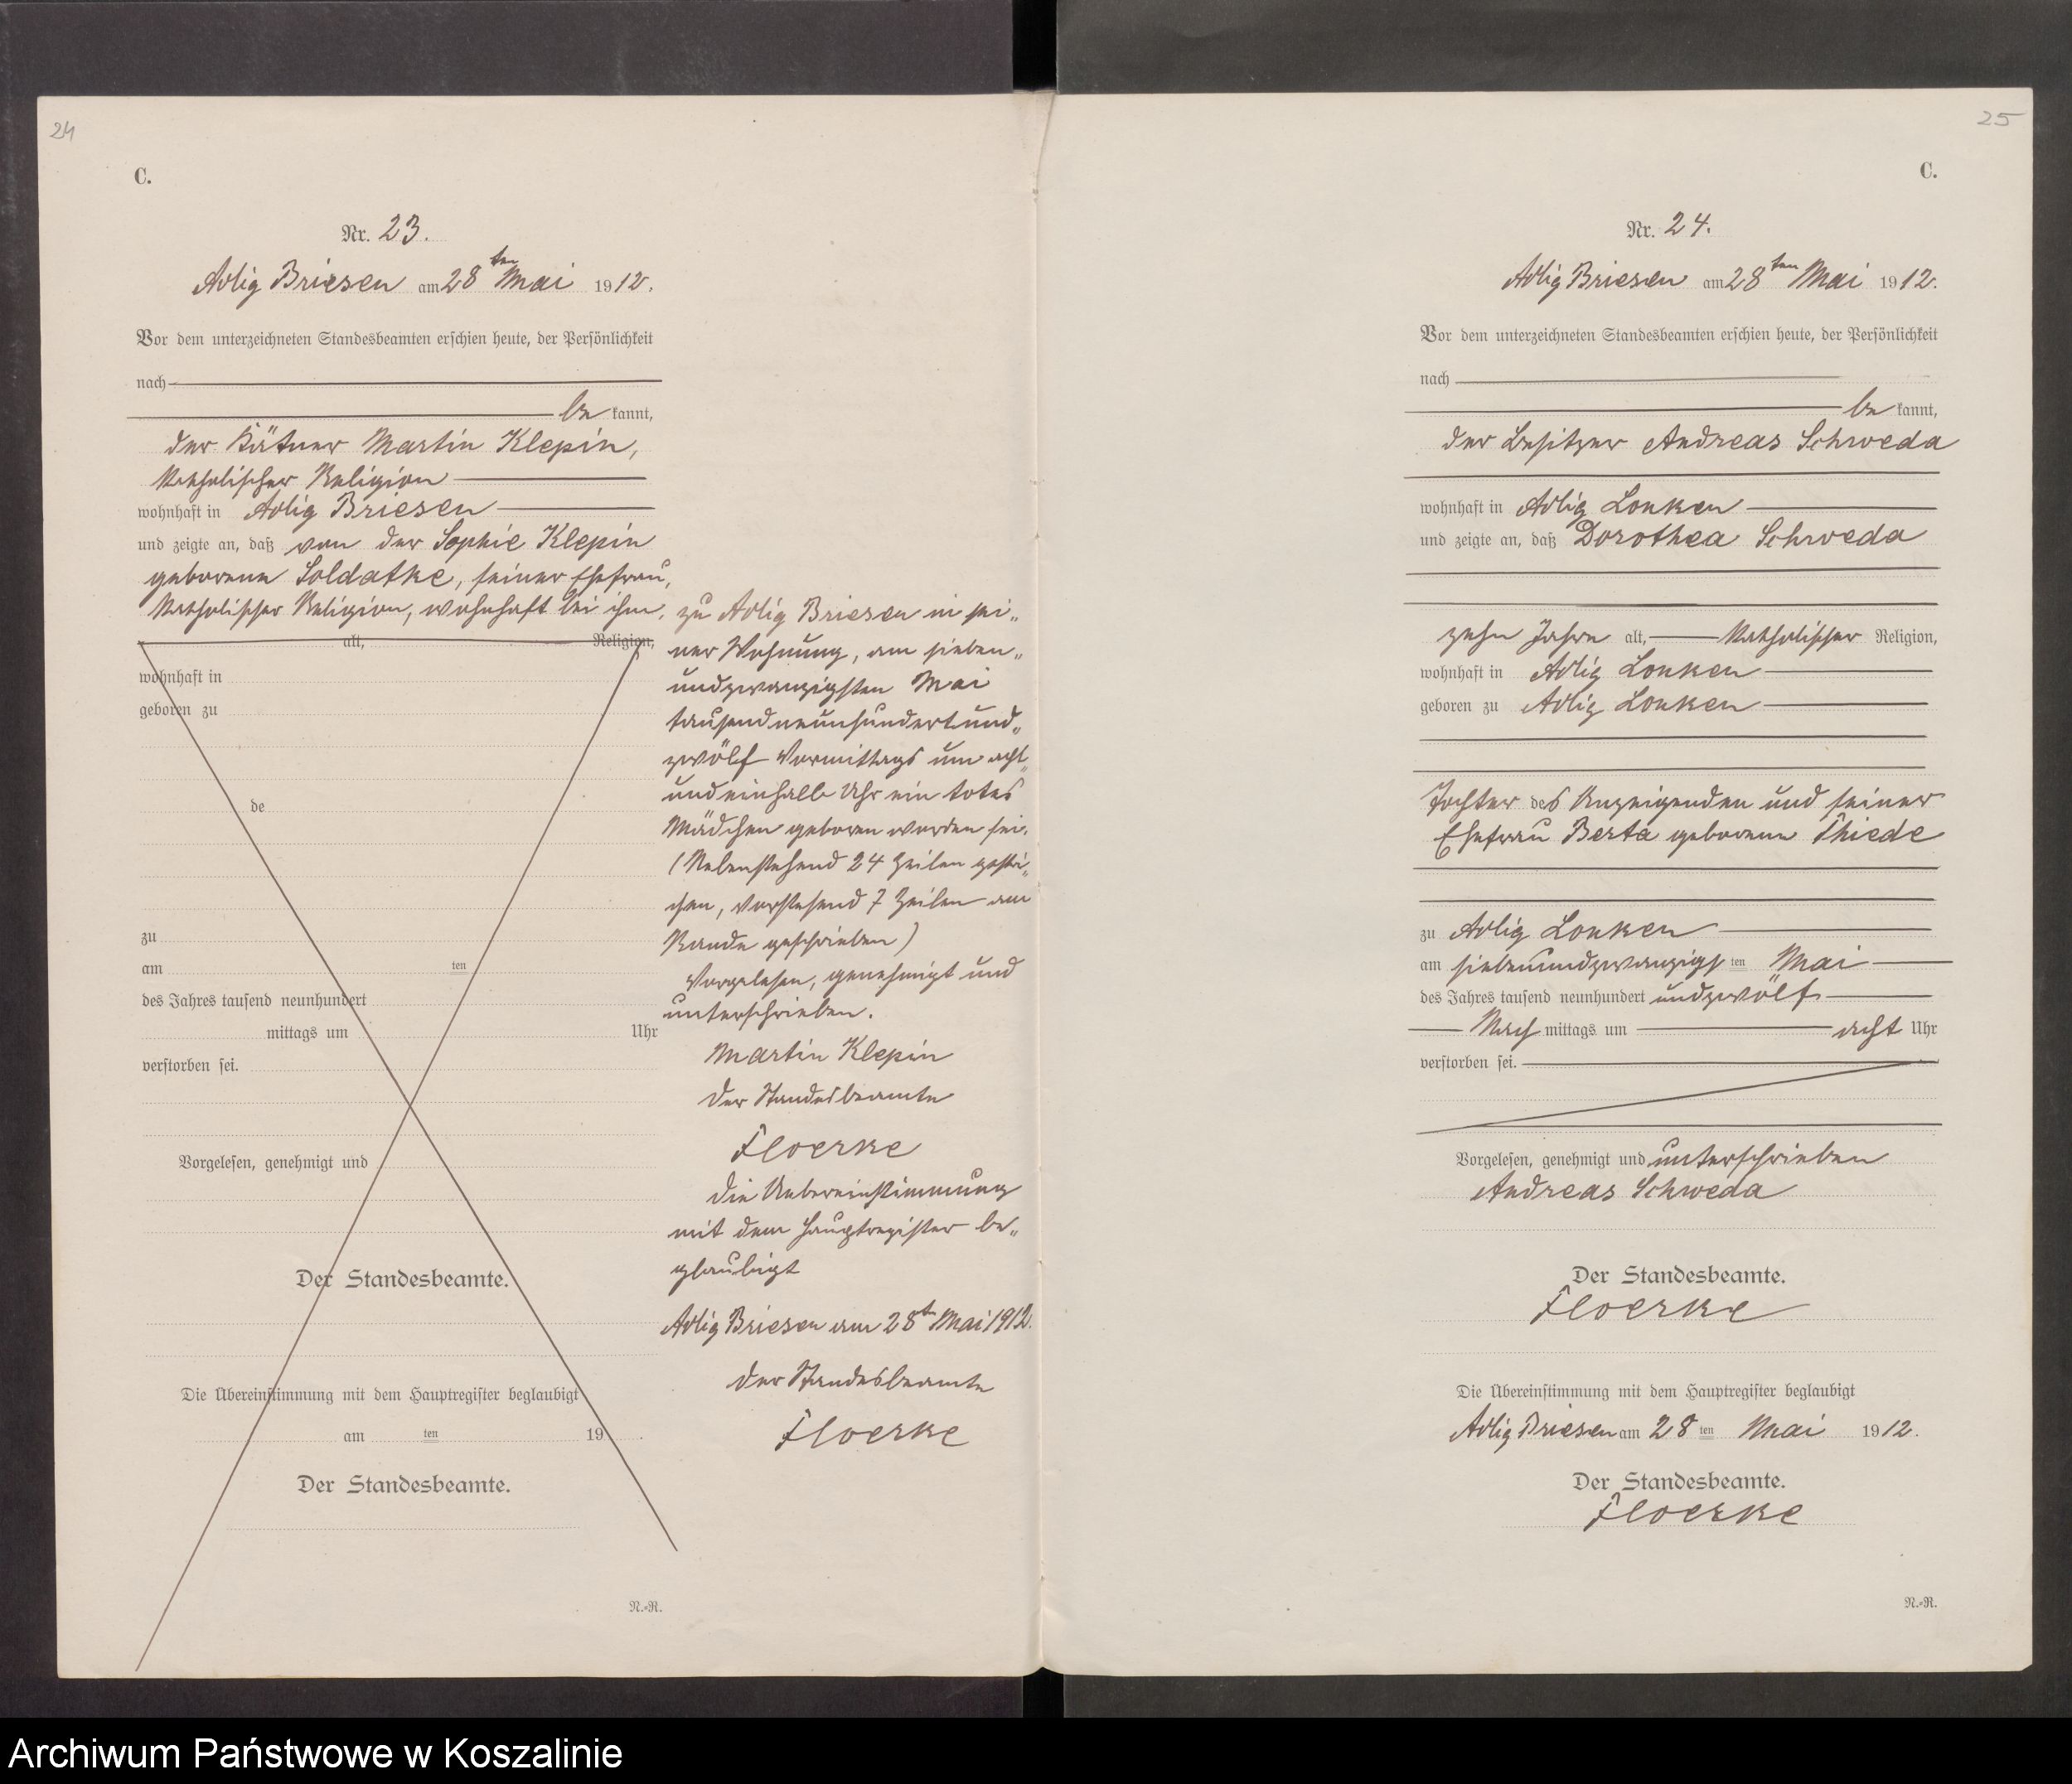 24
C.
Nr. 23.
Adlig Briesen am 28ten Mai 1912.
Vor dem unterzeichneten Standesbeamten erschien heute, der Persönlichkeit
nach
be kannt,
der Kätner Martin Klepin,
katholischer Religion
wohnhaft in Adlig Briesen
und zeigte an, daß von der Sophie Klepin
geborene Soldatke, seiner Ehefrau,
katholischer Religion, wohnhaft bei ihm,
alt, Religion,
wohnhaft in
geboren zu
de
zu
am ten
des Jahres tausend neunhundert
mittags um Uhr
verstorben sei.
Vorgelesen, genehmigt und
Der Standesbeamte.
Die Übereinstimmung mit dem Hauptregister beglaubigt
am ten 19
Der Standesbeamte.
N.-R.
zu Adlig Briesen in sei„
ner Wohnung, am sieben„
undzwanzigsten Mai
tausendneunhundertund„
zwölf Vormittags um acht„
undeinhalb Uhr ein totes
Mädchen geboren worden sei.
(Nebenstehend 24 Zeilen gestri„
chen, vorstehend 7 Zeilen am
Rande geschrieben)
Vorgelesen, genehmigt und
unterschrieben.
Martin Klepin
Der Standesbeamte
Floerke
Die Uebereinstimmung
mit dem Hauptregister be„
glaubigt
Adlig Briesen am 28ten Mai 1912.
Der Standesbeamte
Floerke
25
C.
Nr. 24.
Adlig Briesen am 28ten Mai 1912.
Vor dem unterzeichneten Standesbeamten erschien heute, der Persönlichkeit
nach
be kannt,
der Besitzer Andreas Schweda
wohnhaft in Adlig Lonken
und zeigte an, daß Dorothea Schweda
zehn Jahre alt, katholischer Religion,
wohnhaft in Adlig Lonken
geboren zu Adlig Lonken
Tochter des Anzeigenden und seiner
Ehefrau Berta geborene Thiede
zu Adlig Lonken
am siebenundzwanzigs ten Mai
des Jahres tausend neunhundert undzwölf
Nach mittags um acht Uhr
verstorben sei.
Vorgelesen, genehmigt und unterschrieben
Andreas Schweda
Der Standesbeamte.
Floerke
Die Übereinstimmung mit dem Hauptregister beglaubigt
Adlig Briesen am 28 ten Mai 1912.
Der Standesbeamte.
Floerke
N.-R.
Archiwum Państwowe w Koszalinie